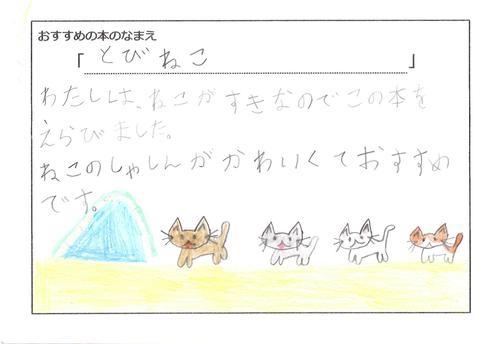 おすすめの本のなまえ
「とびねこ」
わたしは、ねこがすきなのでこの本を
えらびました。
ねこのしゃしんがかわいくておすすめ
です。